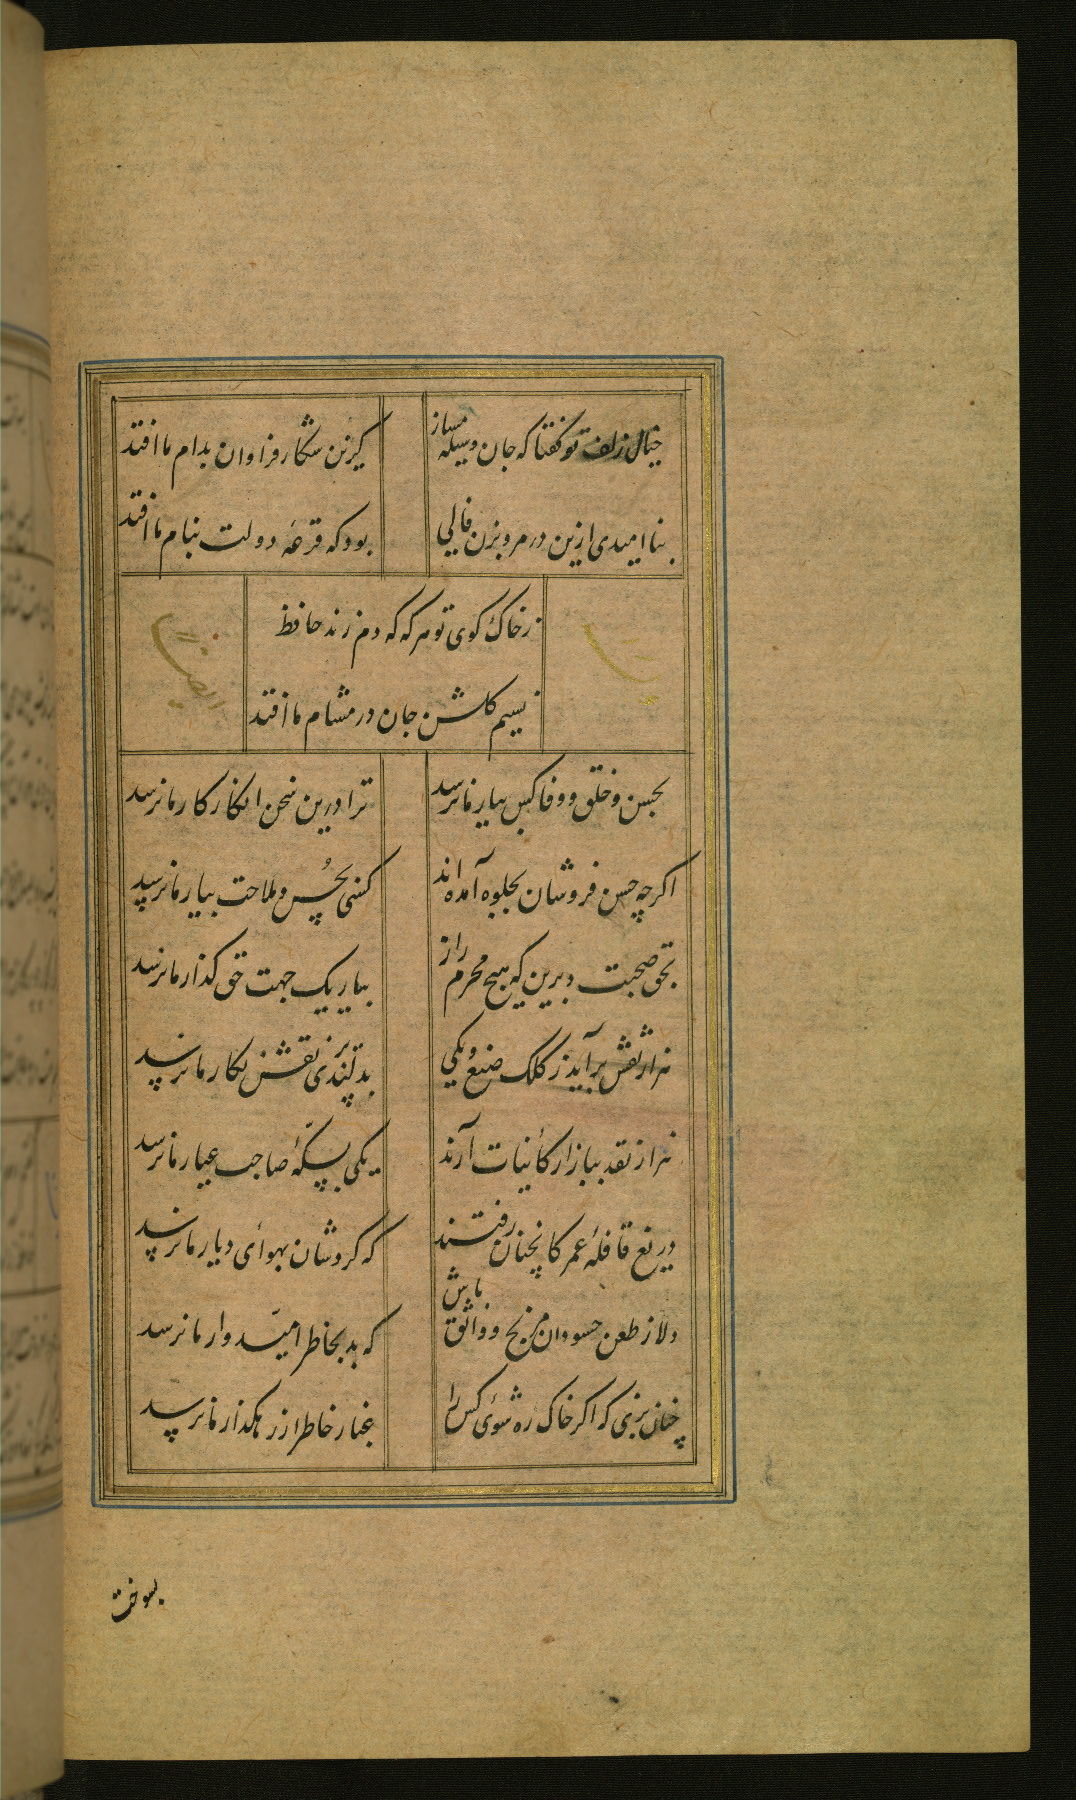 خیال زلف تو گفتا که جان وسیله مساز
کزین شکار فراوان بدام ما افتد
بنا امیدی ازین در مرو بزن فالی
بود که قرعهٔ دولت بنام ما افتد
ز خاک کوی تو هر گه که دم زند حافظ
نسیم گلشن جان در مشام ما افتد
بحسن و خلق و وفا کس بیار ما نرسد
ترا درین سخن انکار کار ما نرسد
اگرچه حسن فروشان بجلوه آمده اند
کسی بحسن و ملاحت بیار ما نرسد
بحق صحبت دیرین که هیچ محرم راز
بیار یک جهت حق گذار ما نرسد
هزار نقش برآید ز کلک صنع و یکی
بدلپذیری نقش نگار ما نرسد
هزار نقد ببازار کائنات آرند
یکی بسکهٔ صاحب عیار ما نرسد
دریغ قافلهٔ عمر کانچنان رفتند
که گردشان بهوای دیار ما نرسد
دلا ز طعن حسودان مرنج و واثق باش
که بد بخاطر امیدوار ما نرسد
چنان بزی که اگر خاک ره شوی کس را
غبار خاطر از رهگذار ما نرسد
بسوخت